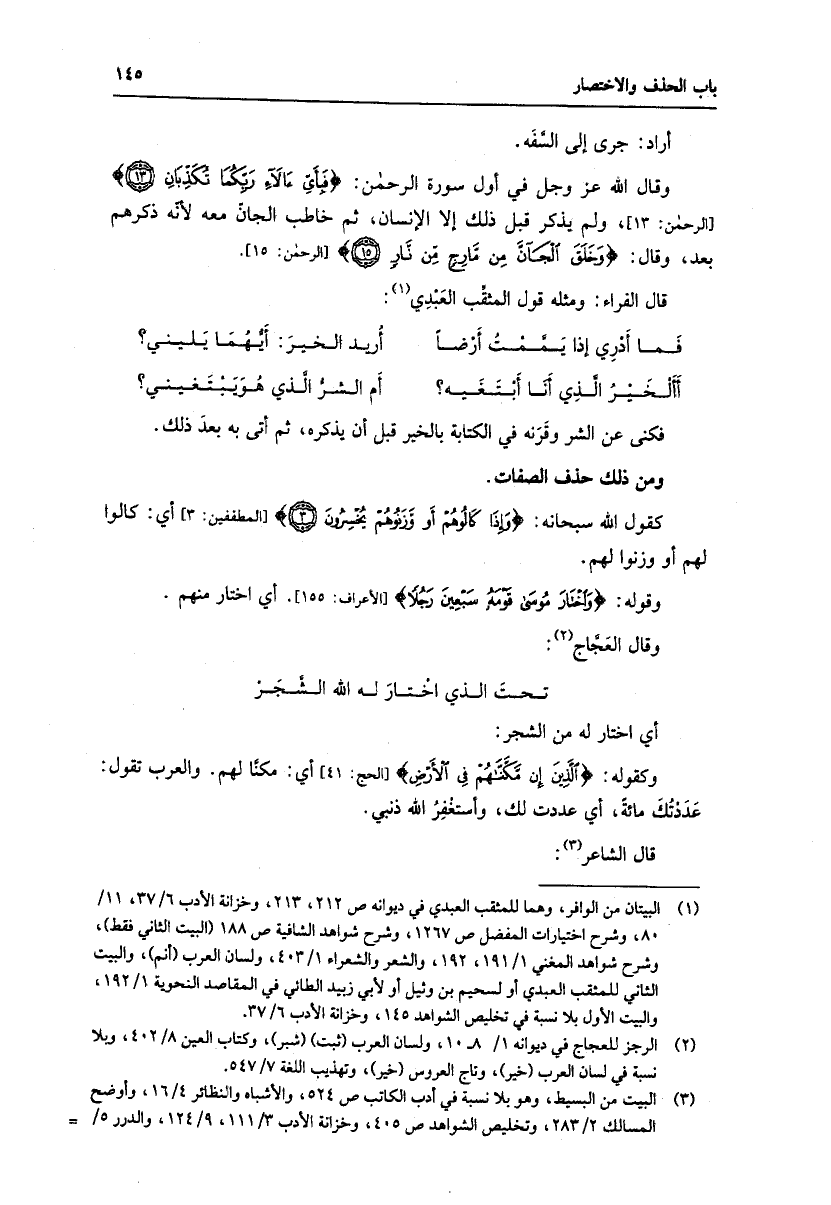 باب الحذف والاختصار ١٤٥
أراد: جرى إلى السَّفَه.
وقال الله عز وجل في أول سورة الرحمٰن: ﴿فَبِأَيِّ ءَالَآءِ رَبِّكُمَا تُكَذِّبَانِ ١٣﴾
[الرحمٰن: ١٣]، ولم يذكر قبل ذلك إلا الإنسان، ثم خاطب الجانّ معه لأنّه ذكرهم
بعد، وقال: ﴿وَخَلَقَ ٱلْجَآنَّ مِن مَّارِجٍ مِّن نَّارٍ ١٥﴾ [الرحمٰن: ١٥].
قال الفراء: ومثله قول المثقّب العَبْدِي(١):
فَـمـا أَدْرِي إذا يَـمَّـمْـتُ أَرْضـاً أُريـد الـخـيـرَ: أَيُّـهُـمَـا يَـلـيـنـي؟
أَأَلْـخَـيْـرُ الَّـذِي أَنَـا أَبْـتَـغَـيـه؟ أَم الـشـرُّ الَّـذي هُـوَ يَـبْـتَـغـيـنـي؟
فكنى عن الشر وقَرَنه في الكتابة بالخير قبل أن يذكره، ثم أتى به بعدَ ذلك.
ومن ذلك حذف الصفات.
كقول الله سبحانه: ﴿وَإِذَا كَالُوهُمْ أَو وَّزَنُوهُمْ يُخْسِرُونَ ٣﴾ [المطففين: ٣] أي: كالوا
لهم أو وزنوا لهم.
وقوله: ﴿وَٱخْتَارَ مُوسَىٰ قَوْمَهُۥ سَبْعِينَ رَجُلًا﴾ [الأعراف: ١٥٥]. أي اختار منهم .
وقال العَجَّاج(٢):
تـحـتَ الـذي اخْـتـارَ لـه الله الـشَّـجَـرْ
أي اختار له من الشجر:
وكقوله: ﴿ٱلَّذِينَ إِن مَّكَّنَّـٰهُمْ فِى ٱلْأَرْضِ﴾ [الحج: ٤١] أي: مكنّا لهم. والعرب تقول:
عَدَدْتُكَ مائةً، أي عددت لك، وأستغْفِرُ الله ذنبي.
قال الشاعر(٣):
(١) البيتان من الوافر، وهما للمثقب العبدي في ديوانه ص ٢١٢، ٢١٣، وخزانة الأدب ٣٧/٦، ١١/
٨٠، وشرح اختيارات المفضل ص ١٢٦٧، وشرح شواهد الشافية ص ١٨٨ (البيت الثاني فقط)،
وشرح شواهد المغني ١٩١/١، ١٩٢، والشعر والشعراء ٤٠٣/١، ولسان العرب (أنم)، والبيت
الثاني للمثقب العبدي أو لسحيم بن وثيل أو لأبي زبيد الطائي في المقاصد النحوية ١٩٢/١،
والبيت الأول بلا نسبة في تخليص الشواهد ١٤٥، وخزانة الأدب ٣٧/٦.
(٢) الرجز للعجاج في ديوانه ١/ ٨ـ ١٠، ولسان العرب (ثبت) (شبر)، وكتاب العين ٤٠٢/٨، وبلا
نسبة في لسان العرب (خير)، وتاج العروس (خير)، وتهذيب اللغة ٥٤٧/٧.
(٣) البيت من البسيط، وهو بلا نسبة في أدب الكاتب ص ٥٢٤، والأشباه والنظائر ١٦/٤، وأوضح
المسالك ٢٨٣/٢، وتخليص الشواهد ص ٤٠٥، وخزانة الأدب ١١١/٣، ١٢٤/٩، والدرر ٥/ =